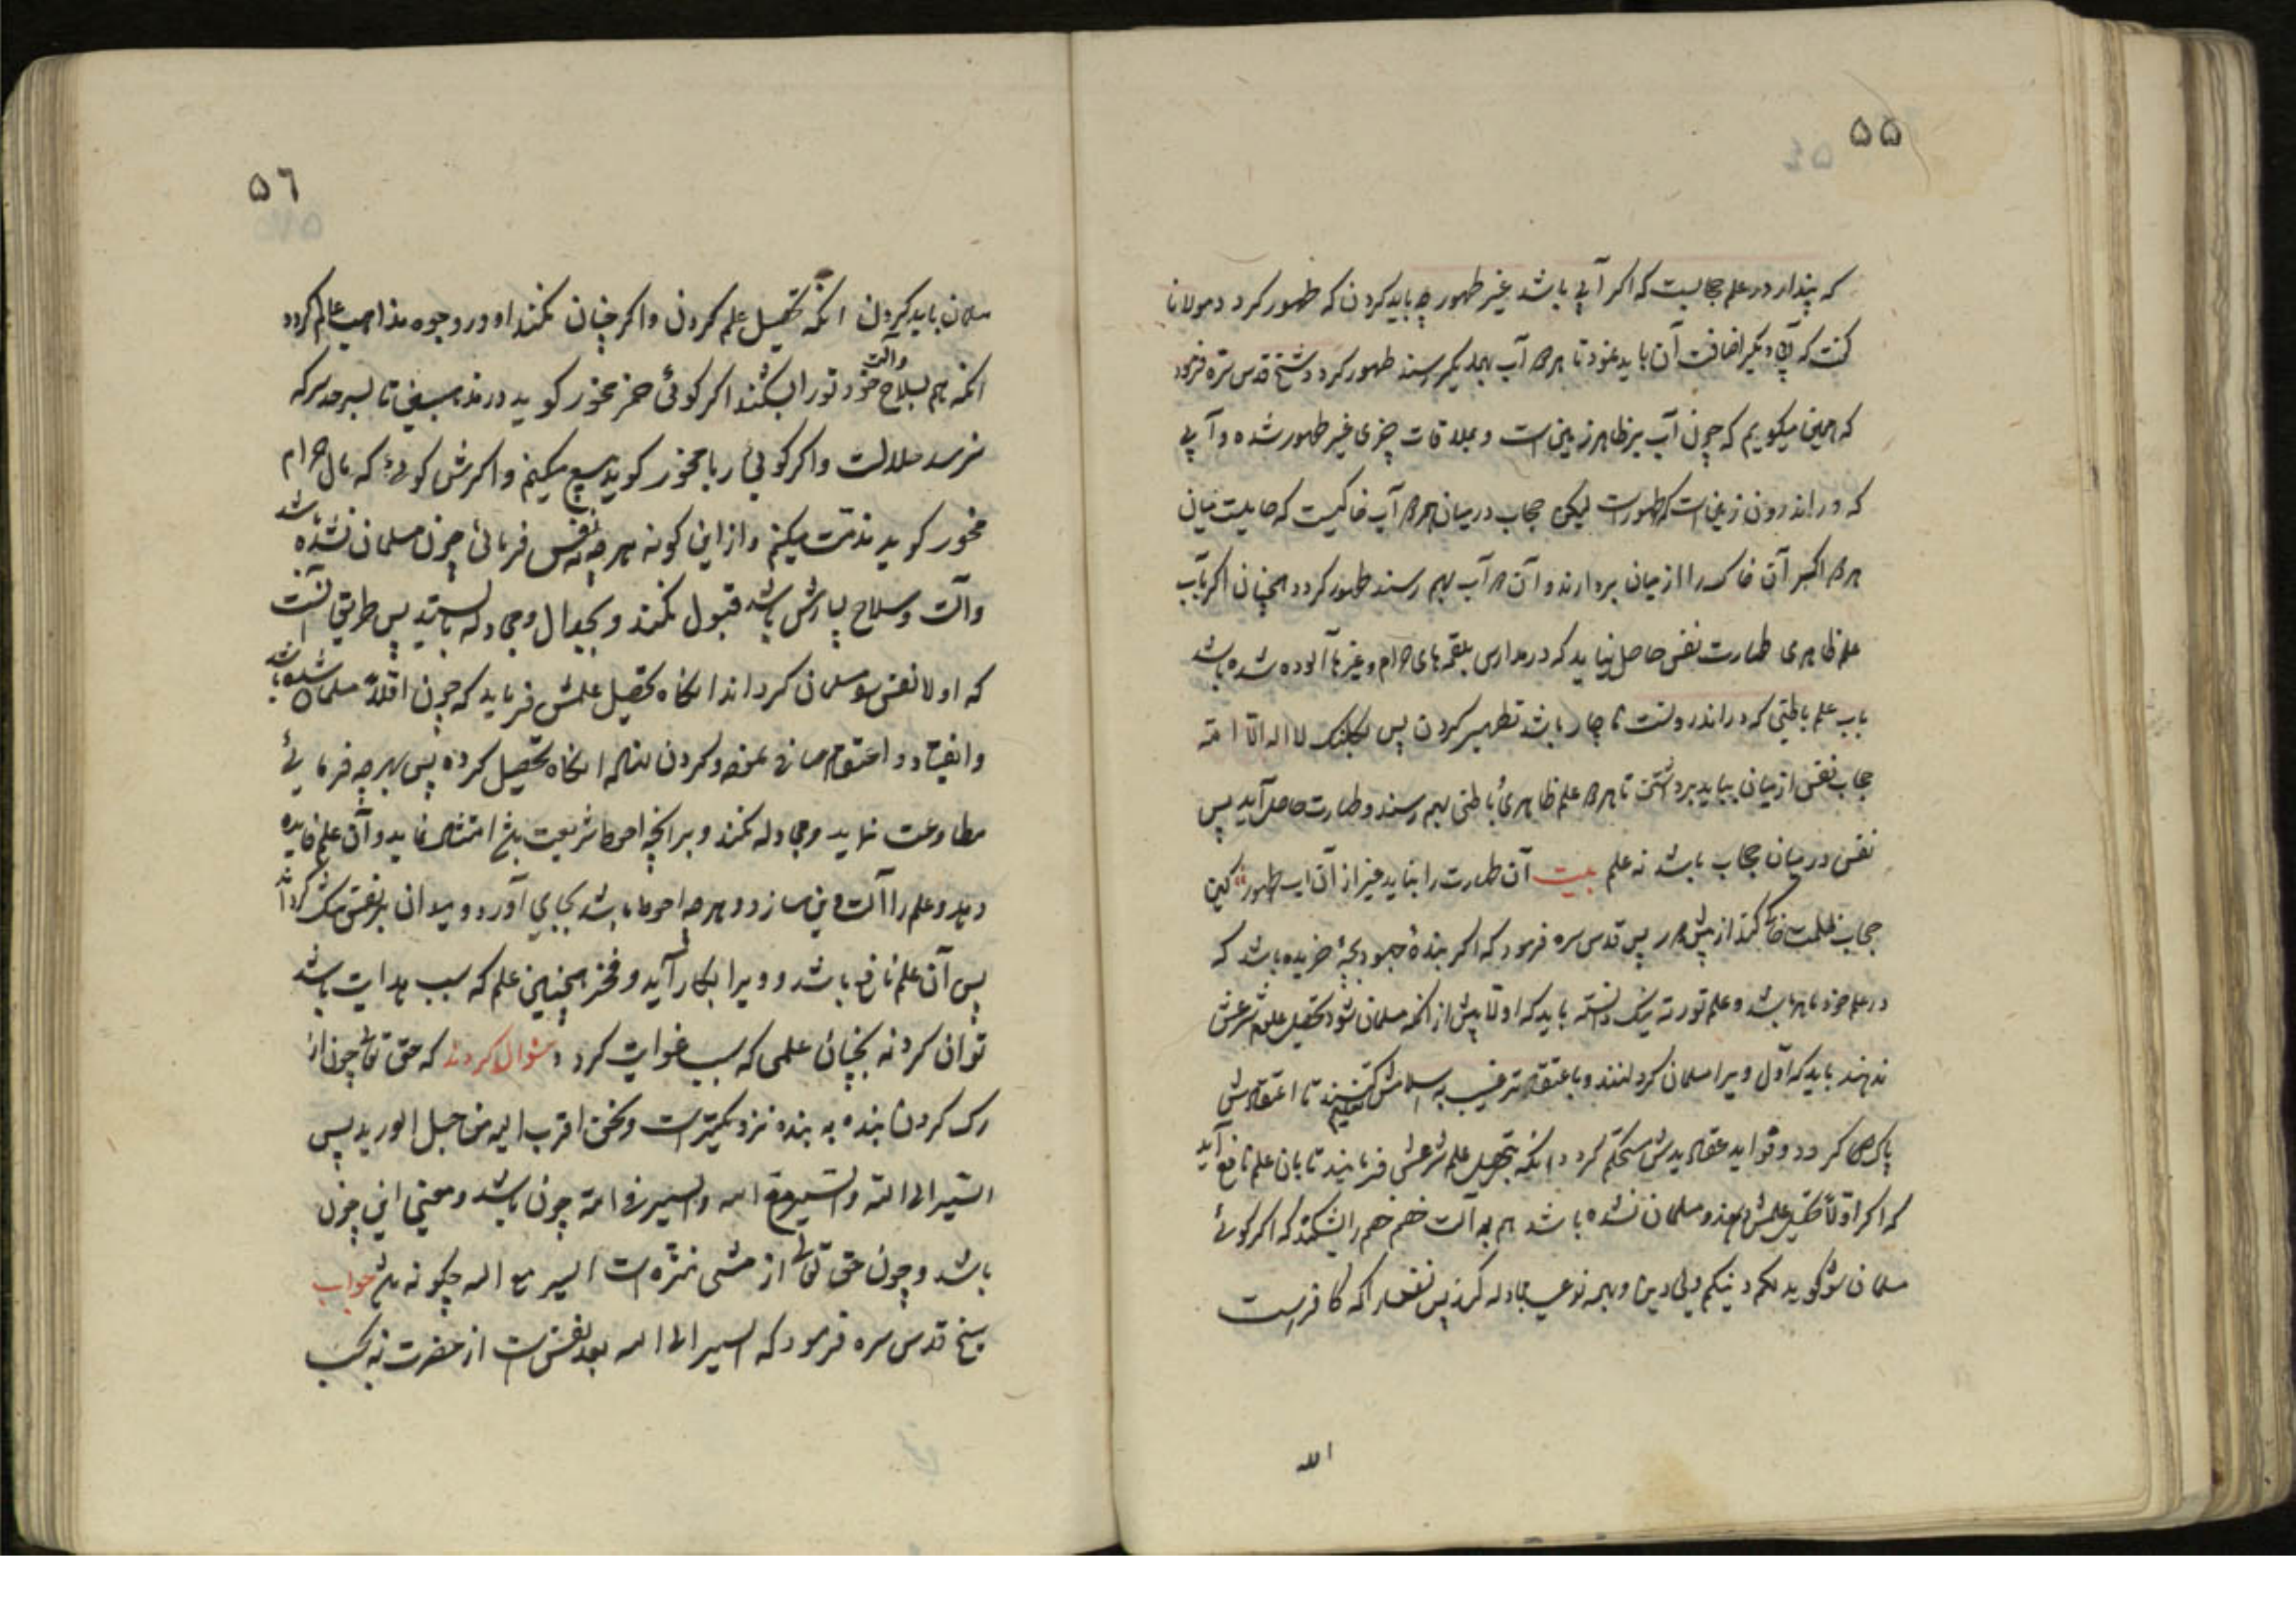 ۵۵
که پندار در علم حجابیست که اگر آبی باشد غیر طهور چه باید کردن که طهور گردد مولانا
گفت که آبی دیگر اضافت آن باید نمود تا هر دو آب بهمدیگر رسند طهور گردد شیخ قدس سره فرمود
که همین میگویم که چون آب بر ظاهر زمین است و بملاقات چیزی غیر طهور شده و آبی
که در اندرون زمین است که طهور است لیکن حجاب درمیان هر دو آب خاکیست که حایلست میان
هر دو آن خاک را از میان بردارند و آن دو آب بهم رسند طهور گردد همچنان اگر بآب
علم ظاهری طهارت نفس حاصل نیاید که در مدارس بلقمه‌های حرام و غیرها آلوده شده باشد
بآب علم باطنی که در اندرونست ناچار باشد تطهیر کردن پس لا اله الا الله
حجاب نفس از میان بباید برداشتن تا هر دو علم ظاهری باطنی بهم رسند و طهارت حاصل آید پس
نفس درمیان حجاب باشد نه علم بیت آن طهارت را نباید غیر از آن آب طهور کین
حجاب ظلمت از پیش در پس قدس سره فرمود که اگر بندهٔ خریده باشد که
در علم خود ماهر باشد و علم توریة نیک دانسته باید که اولا پیش از آنکه مسلمان شود تحصیل علوم شرعش
ندهند باید که اول ویرا مسلمان گردانند و باعتقاد ترغیب به اسلامش کنند تعلیم تا اعتقادش
پاک گردد و قواید عقایدش مستحکم گردد آنگه بتحصیل علم شرعش فرمایند تا بان علم نافع آید
که اگر اولا تحصیل علمش دهند و مسلمان نشده باشد هم به آلت خصم خصم را بشکند که اگر گوئی
مسلمان شو گوید لکم دینکم ولی دین و بهمه نوعی مجادله کند پس نفس را که کافرست
الله
۵٦
مسلمان باید کردن آنگه تحصیل علم کردن و اگر چنان نکنند او در وجوه مذاهب عالم گردد
آنگه هم بسلاح وآلت خود تو را بشکند اگر گوئی خمر مخور گوید در مذهب تا بسر حد سکر که
نرسد حلالست و اگر گوئی ربا مخور گوید بیع میکنم و اگرش گوئی که مال حرام
مخور گوید میکنم و از این گونه هر چه نفس فرمائی چون مسلمان نشده باشد
وآلت و سلاح باشد قبول نکند و بجدال و مجادله بایستد پس طریق آنست
که اولا نفس مسلمان گرداند آنگاه تحصیل علمش فرماید که چون اولا مسلمان شده باشد
وانقیاد و اعتقاد کردن آنگاه تحصیل کرده پس بهر چه فرمائی
مطاوعت نماید و مجادله نکند و بر آنچه احوط شریعت باشد امتثال نماید و آن علم فایده
دهد و علم را آلت دین سازد و هر چه احوط باشد بجای آورد و میدان بر نفس
پس آن علم نافع باشد و ویرا بکار آید و فخر همچنین علم که سبب هدایت باشد
توان کرد نه بچنان علمی که سبب غوایت گردد سؤال کردند که حق تعالی چون از
رک گردن بنده به بنده نزدیکترست ونحن اقرب الیه من حبل الورید پس
السیر الی الله والسیر مع الله والسیر فی الله چون باشد و معنی این چون
باشد و چون حق تعالی از مشی منزه است السیر مع الله چگونه باشد جواب
شیخ قدس سره فرمود که السیر الی الله بعد نفس است از حضرت نه